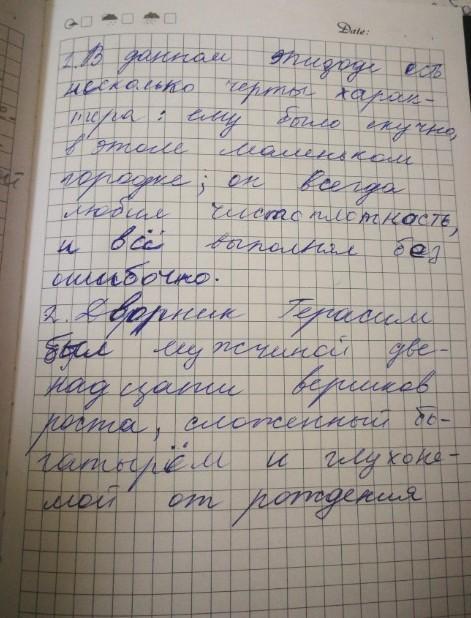 Date:
1. В данном эпизоде есть
несколько черты харак-
тера: ему было скучно,
в этом маленьком
городке; он всегда
любил чистоплотность,
и всё выполнял без
ошибочно.
2. Дворник Герасим
был мужчиной две-
надцати вершков
роста, сложенный бо-
гатырём и глухоне-
мой от рождения